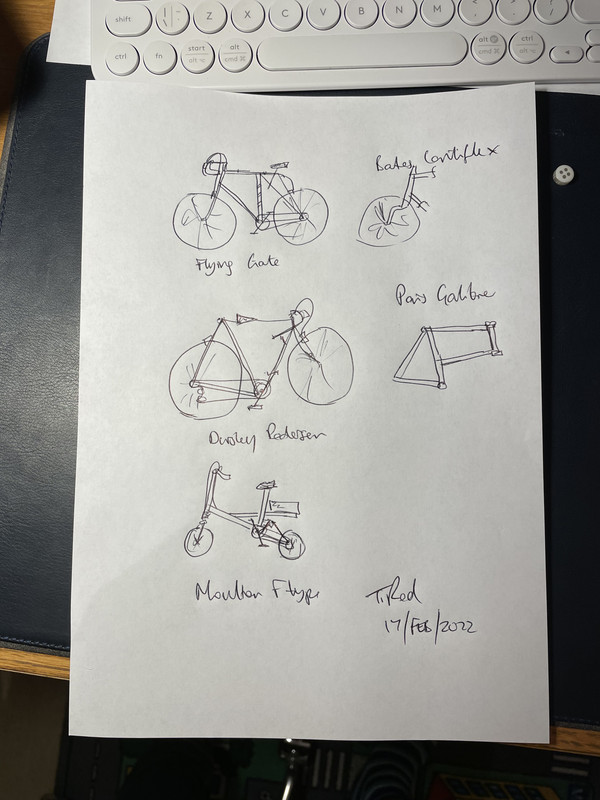 shift
\ |
Z
X
C
V
B
N
M
<
,
>
.
?
/
ctrl
fn
start
alt
alt
cmd ⌘
alt
cmd ⌘
ctrl
Bates Cantiflex
Flying Gate
Paris Galibre
Dursley Pedersen
Moulton F type
T.Red
17/FEB/2022